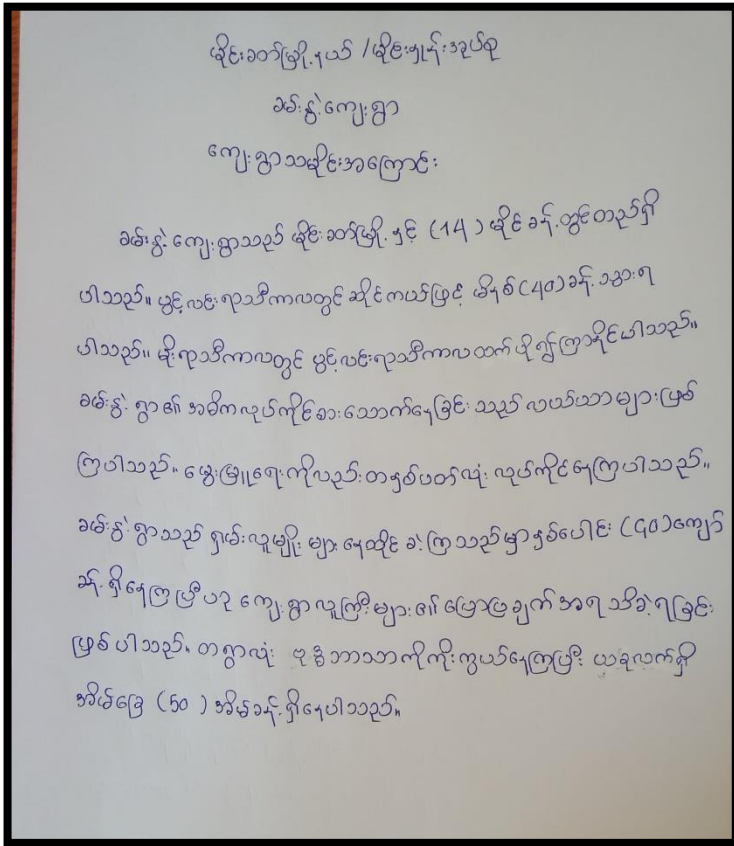 မိုင်းခတ်မြို့နယ် /မိုင်းဟွန်းအုပ်စု
ခမ်းနွဲ့ကျေးရွာ
ကျေးရွာသမိုင်းအကြောင်း
ခမ်းနွဲ့ ကျေးရွာသည် မိုင်းခတ်မြို့ နှင့် (14) မိုင် ခန့် တွင်တည်ရှိ
ပါသည်။ ပွင့်လင်းရာသီကာလတွင် ဆိုင်ကယ်ဖြင့် မိနစ်(40)ခန့် သွားရ
ပါသည်။ မိုးရာသီကာလတွင် ပွင့်လင်းရာသီကာလထက် ပို၍ကြာနိုင်ပါသည်။
ခမ်းနွဲ့ ရွာ၏ အဓိကလုပ်ကိုင်စားသောက်နေခြင်း သည် လယ်ယာများဖြစ်
ကြပါသည်။ မွေးမြူရေးကိုလည်း တနှစ်ပတ်လုံး လုပ်ကိုင်နေကြပါသည်။
ခမ်းနွဲ့ ရွာသည် ရှမ်းလူမျိုး များ နေထိုင် ခဲ့ကြသည်မှာ နှစ်ပေါင်း (90)ကျော်
ခန့် ရှိနေကြပြီဟု ကျေးရွာလူကြီးများ၏ ပြောပြချက် အရ သိခဲ့ရခြင်း
ဖြစ်ပါသည်။ တရွာလုံး ဗုဒ္ဓဘာသာကိုကိုးကွယ်နေကြပြီး ယခုလက်ရှိ
အိမ်ခြေ (50) အိမ်ခန့် ရှိနေပါသည်။